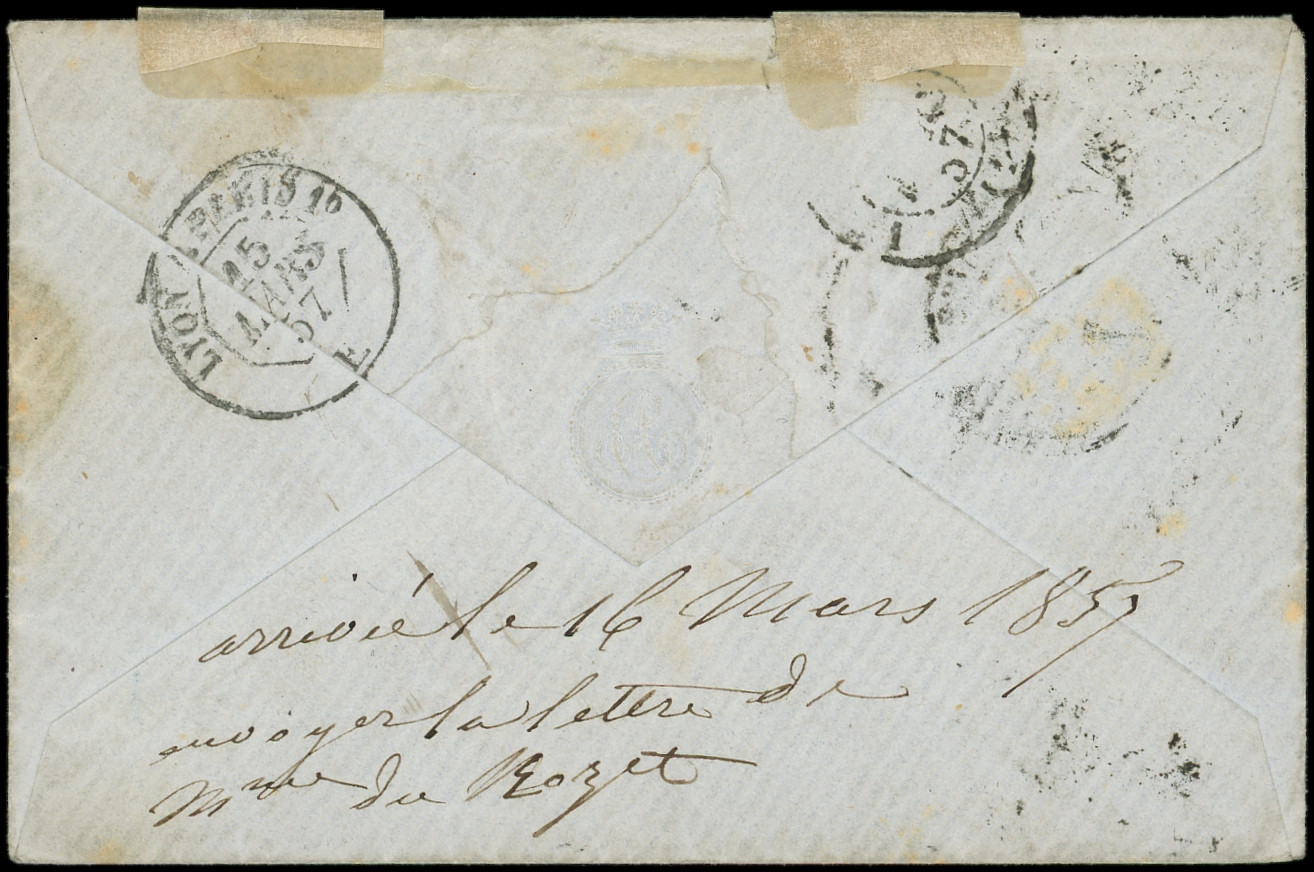 LYON A PARIS 1º
15
MARS
57
E
57
1
arrivée le 16 Mars 1857
envoyer la lettre de
Mme du Rozet